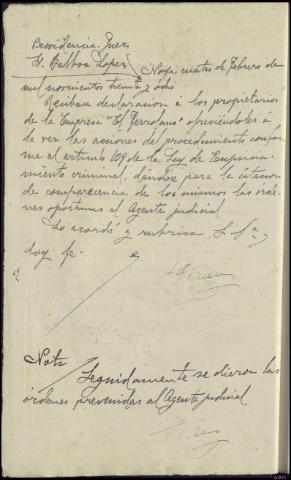 Providencia. Juez
Sr. Balboa Lopez
Noya, cuatro de febrero de
mil novecientos treinta y ocho
Recíbase declaracion a los propietarios
de la Empresa "El Ferrolano" ofreciéndoles a
la vez las acciones del procedimiento confor-
me al artículo 109 de la Ley de Enjuicia-
miento criminal, dándose para la citacion
de comparecencia de los mismos las órde-
nes oportunas al Agente judicial
Lo acordó y rubrica S. Sª,
doy fe.-
Nota
Seguidamente se dieron las
órdenes prevenidas al Agente judicial